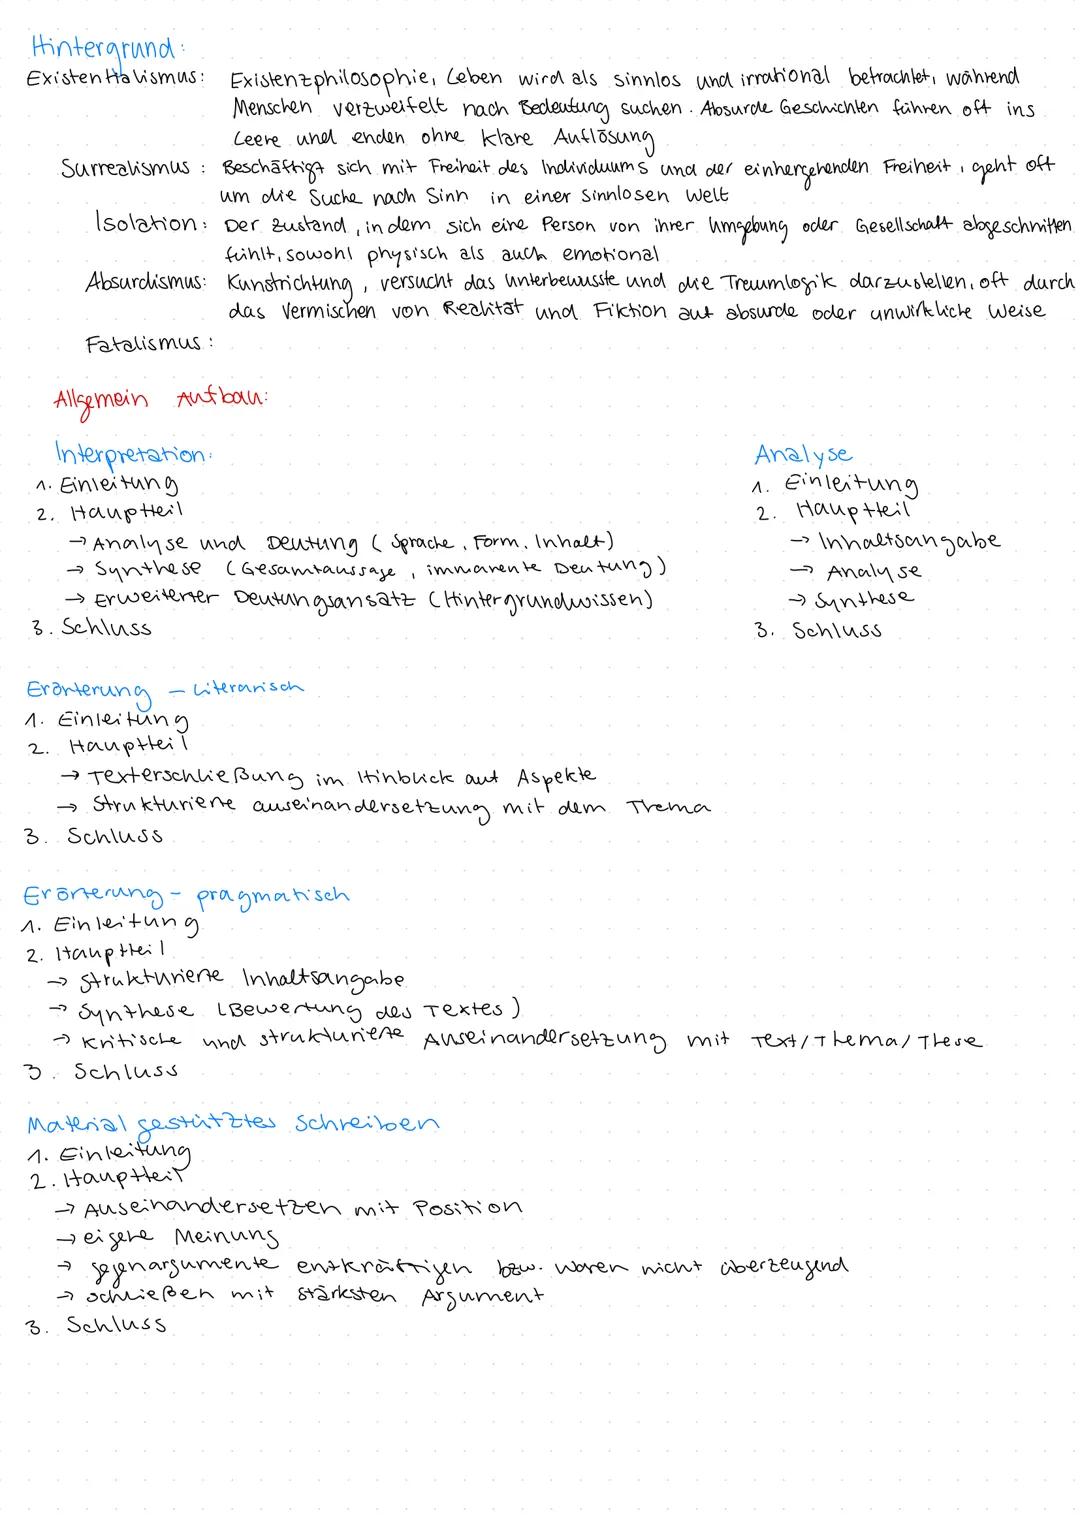 Hintergrund:
Existentialismus: Existenzphilosophie, Leben wird als sinnlos und irrational betrachtet, während
Menschen verzweifelt nach Bedeutung suchen. Absurde Geschichten führen oft ins
Leere und enden ohne klare Auflösung
Surrealismus: Beschäftigt sich mit Freiheit des Individuums und der einhergehenden Freiheit, geht oft
um die Suche nach Sinn in einer sinnlosen Welt
Isolation: Der Zustand, indem sich eine Person von ihrer Umgebung oder Gesellschaft abgeschnitten
fühlt, sowohl physisch als auch emotional
Absurdismus: Kunstrichtung, versucht das Unterbewusste und die Traumlogik darzustellen, oft durch
das Vermischen von Realität und Fiktion auf absurde oder unwirkliche Weise
Fatalismus:
Allgemein Aufbau:
Interpretation:
1. Einleitung
2. Hauptteil
→ Analyse und Deutung (Sprache, Form, Inhalt)
→ Synthese (Gesamtaussage, immanente Deutung)
→ Erweiterter Deutungsansatz (Hintergrundwissen)
3. Schluss
Analyse
1. Einleitung
2. Hauptteil
→ Inhaltsangabe
→ Analyse
→ Synthese
3. Schluss
Erörterung - Literarisch
1. Einleitung
2. Hauptteil
→ Texterschließung im Hinblick auf Aspekte
→ Strukturierte auseinandersetzung mit dem Thema
3. Schluss
Erörterung - pragmatisch
1. Einleitung
2. Hauptteil
→ Strukturierte Inhaltsangabe
→ Synthese (Bewertung des Textes)
→ Kritische und strukturierte Auseinandersetzung mit Text/Thema/These
3. Schluss
Material gestütztes Schreiben
1. Einleitung
2. Hauptteil
→ Auseinandersetzen mit Position
→ eigene Meinung
→ gegenargumente entkräftigen bzw. waren nicht überzeugend
→ schließen mit stärksten Argument
3. Schluss